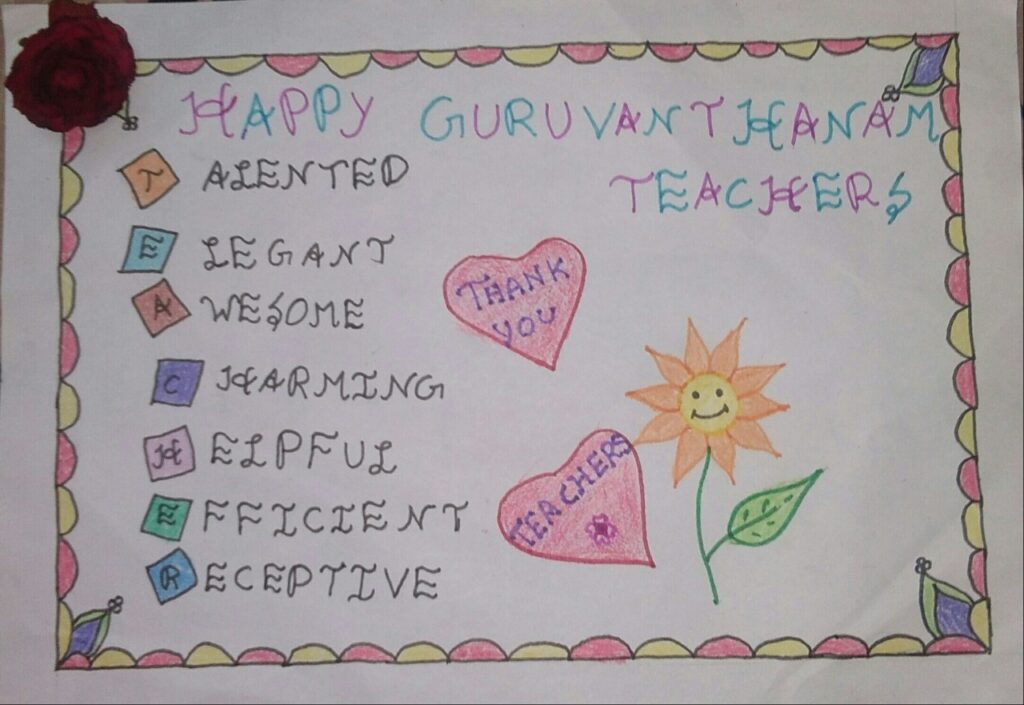 HAPPY GURUVANTHANAM
TEACHERS
TALENTED
ELEGANT
AWESOME
CHARMING
HELPFUL
EFFICIENT
RECEPTIVE
THANK
YOU
TEACHERS